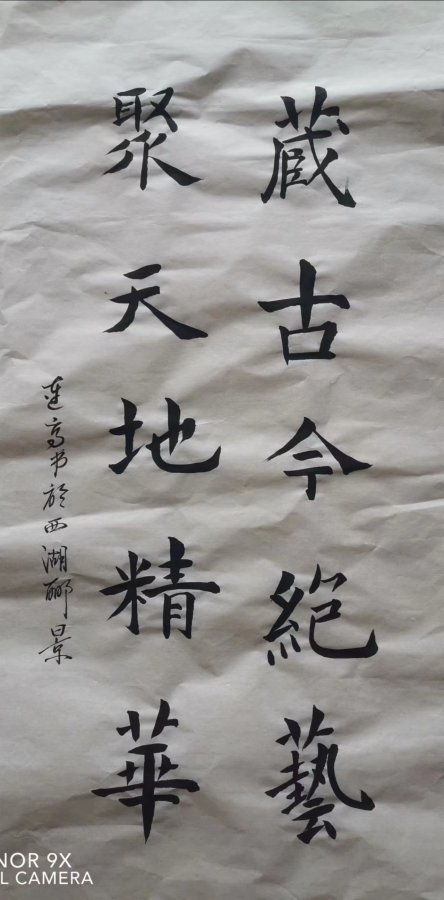 藏古今絕藝
聚天地精華
連高书於西湖郦景
NOR 9X
L CAMERA